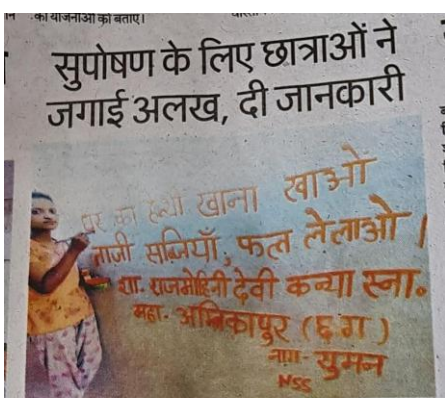 की योजनाओं को बताए।
सुपोषण के लिए छात्राओं ने
जगाई अलख, दी जानकारी
घर का खाना खाओ
ताजी सब्जियाँ, फल लेलाओ।
शा. राजमोहिनी देवी कन्या स्ना.
महा. अम्बिकापुर (छ ग)
नाम - सुमन
NSS